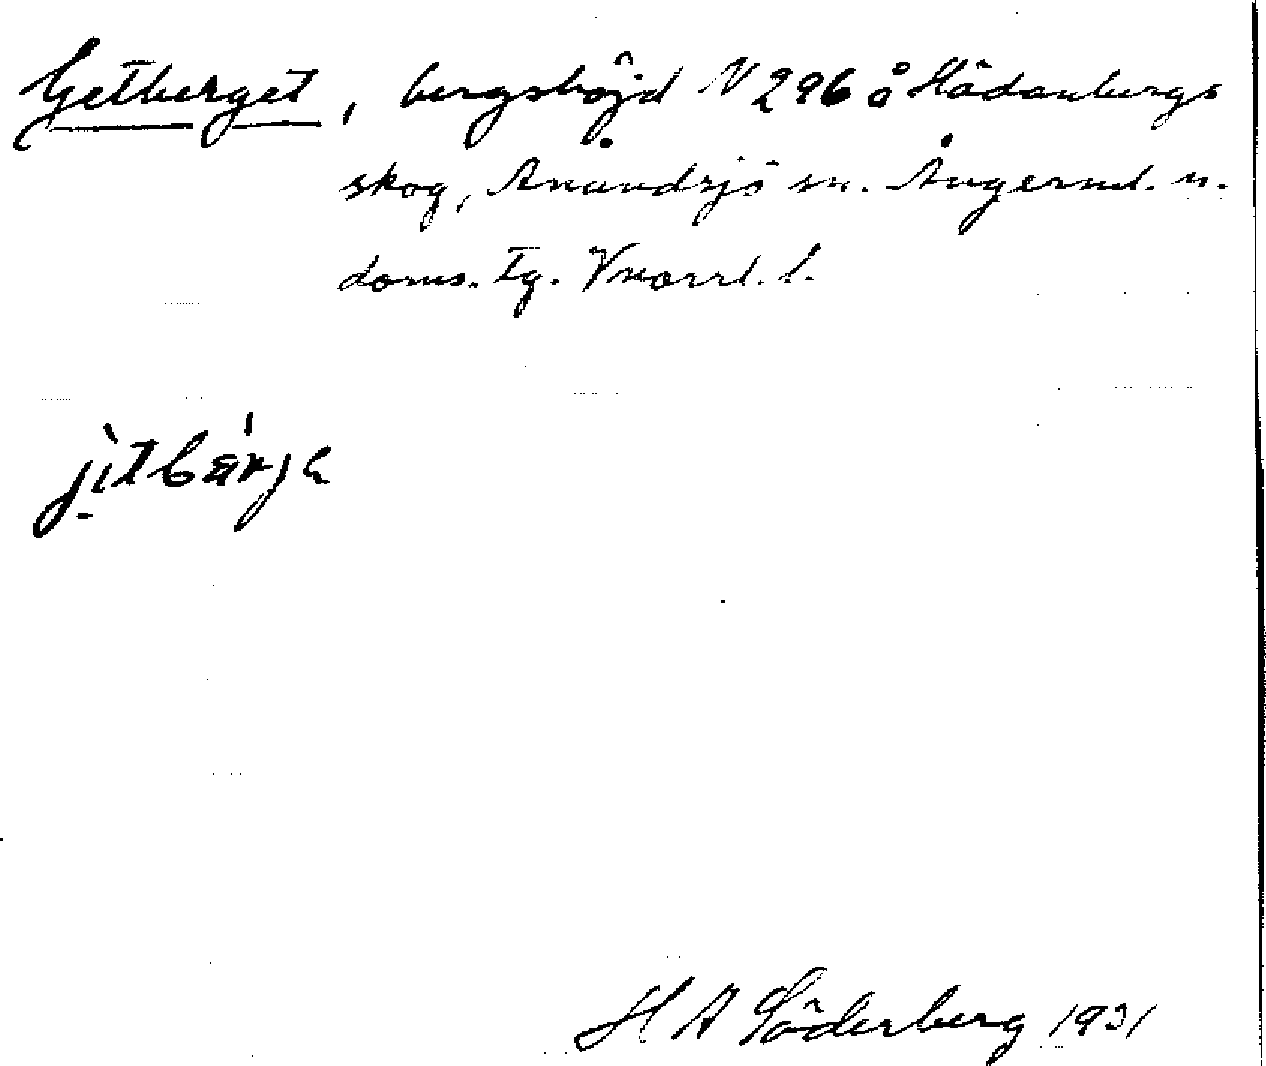 Getberget, bergshöjd N 296 å Hädanbergs
skog, Anundsjö sn. Ångerml. n.
doms. tg. Vnorrl. l.
jìtbä́rjɘ
H A Söderberg 1931